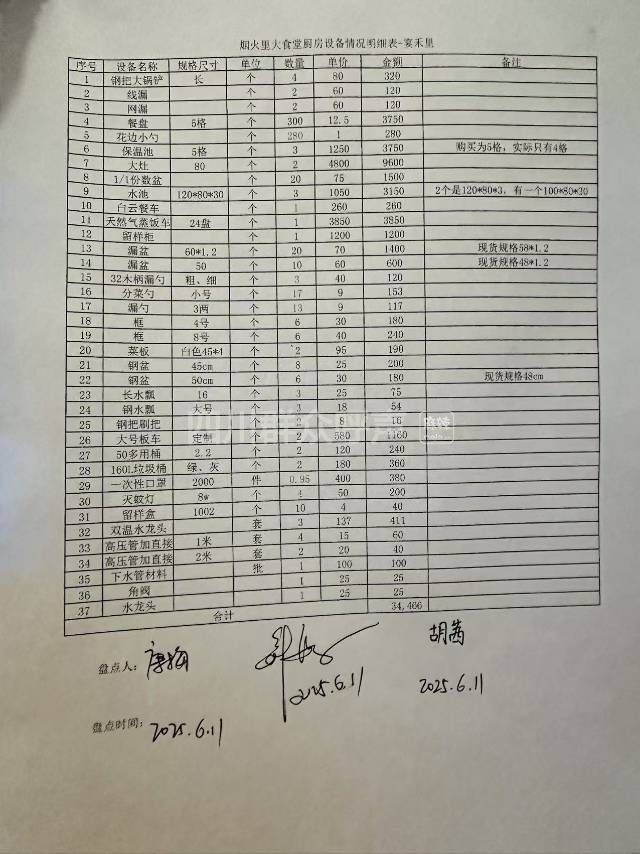 烟火里大食堂厨房设备情况明细表-宴禾里
序号 设备名称 规格尺寸 单位 数量 单价 金额 备注
1 钢把大锅铲 长 个 4 80 320
2 线漏 个 2 60 120
3 网漏 个 2 60 120
4 餐盘 5格 个 300 12.5 3750
5 花边小勺 个 280 1 280
6 保温池 5格 个 3 1250 3750 购买为5格，实际只有4格
7 大灶 80 个 2 4800 9600
8 1/1份数盆 个 20 75 1500
9 水池 120*80*30 个 3 1050 3150 2个是120*80*3，有一个100*80*30
10 白云餐车 个 1 260 260
11 天然气蒸饭车 24盘 个 1 3850 3850
12 留样柜 个 1 1200 1200
13 漏盆 60*1.2 个 20 70 1400 现货规格58*1.2
14 漏盆 50 个 10 60 600 现货规格48*1.2
15 32木柄漏勺 粗、细 个 3 40 120
16 分菜勺 小号 个 17 9 153
17 漏勺 3两 个 13 9 117
18 框 4号 个 6 30 180
19 框 8号 个 6 40 240
20 菜板 白色45*4 个 2 95 190
21 钢盆 45cm 个 8 25 200
22 钢盆 50cm 个 6 30 180 现货规格48cm
23 长水瓢 16 个 3 25 75
24 钢水瓢 大号 个 3 18 54
25 钢把刷把 个 2 8 16
26 大号板车 定制 个 2 580 1160
27 50多用桶 2.2 个 2 120 240
28 160L垃圾桶 绿、灰 个 2 180 360
29 一次性口罩 2000 件 0.95 400 380
30 灭蚊灯 8w 个 4 50 200
31 留样盒 1002 个 10 4 40
32 双温水龙头 套 3 137 411
33 高压管加直接 1米 套 4 15 60
34 高压管加直接 2米 套 2 20 40
35 下水管材料 批 1 100 100
36 角阀 1 25 25
37 水龙头 1 25 25
合计 34,466
盘点人：唐梅
胡茜
2025.6.11
2025.6.11
盘点时间：2025.6.11
四川群众呼声